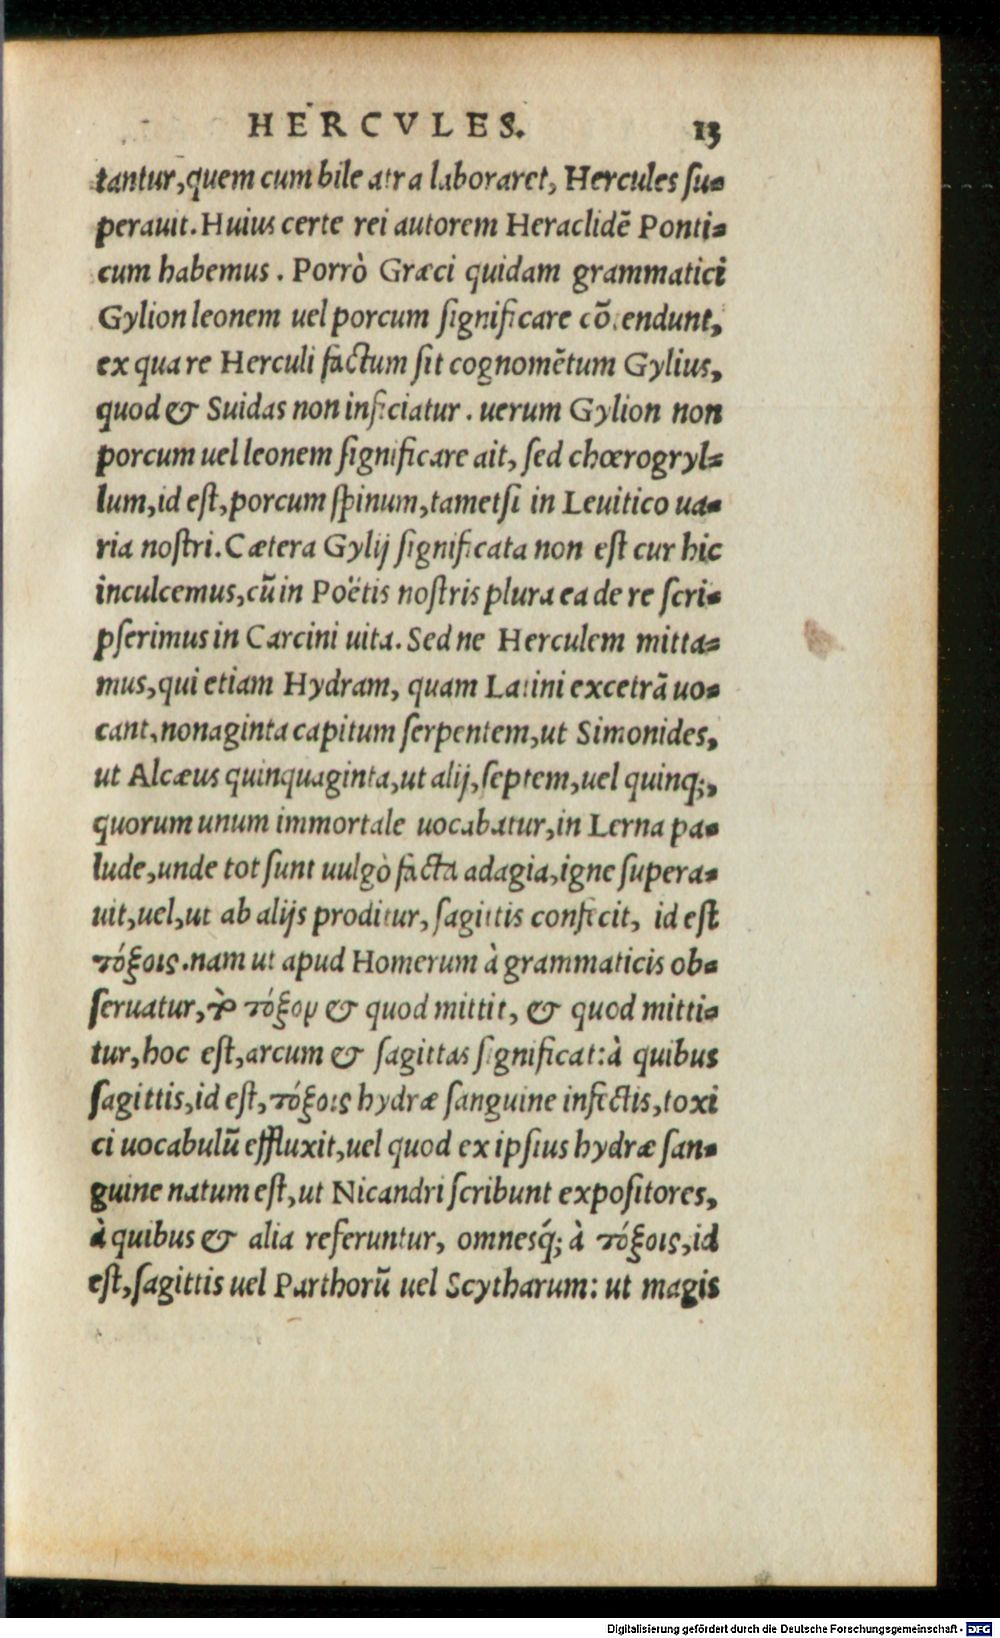 HERCVLES. 13
tantur, quem cum bile atra laboraret, Hercules su-
perauit. Huius certe rei autorem Heraclidē Ponti-
cum habemus. Porrò Græci quidam grammatici
Gylion leonem uel porcum significare cōtendunt,
ex qua re Herculi factum sit cognomētum Gylius,
quod & Suidas non inficiatur. uerum Gylion non
porcum uel leonem significare ait, sed chœrogryl-
lum, id est, porcum spinum, tametsi in Leuitico ua-
ria nostri. Cætera Gylij significata non est cur hic
inculcemus, cū in Poëtis nostris plura ea de re scri-
pserimus in Carcini uita. Sed ne Herculem mitta-
mus, qui etiam Hydram, quam Latini excetrā uo-
cant, nonaginta capitum serpentem, ut Simonides,
ut Alcæus quinquaginta, ut alij, septem, uel quinq;,
quorum unum immortale uocabatur, in Lerna pa-
lude, unde tot sunt uulgò facta adagia, igne supera-
uit, uel, ut ab alijs proditur, sagittis confecit, id est
τόξοις. nam ut apud Homerum à grammaticis ob-
seruatur, τὸ τόξον & quod mittit, & quod mitti-
tur, hoc est, arcum & sagittas significat: à quibus
sagittis, id est, τόξοις hydræ sanguine infectis, toxi
ci uocabulū effluxit, uel quod ex ipsius hydræ san-
guine natum est, ut Nicandri scribunt expositores,
à quibus & alia referuntur, omnesq́; à τόξοις, id
est, sagittis uel Parthorū uel Scytharum: ut magis
Digitalisierung gefördert durch die Deutsche Forschungsgemeinschaft - DFG